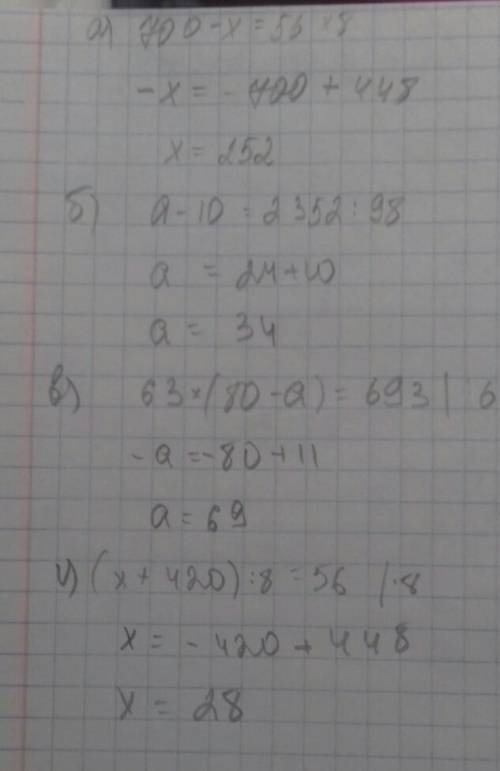 а) 700 - x = 56 × 8
- x = - 700 + 448
x = 252
б) a - 10 = 2352 : 98
a = 24 + 10
a = 34
в) 63 × (80 - a) = 693 | 6
- a = - 80 + 11
a = 69
(x + 420) : 8 = 56 / · 8
x = - 420 + 448
x = 28